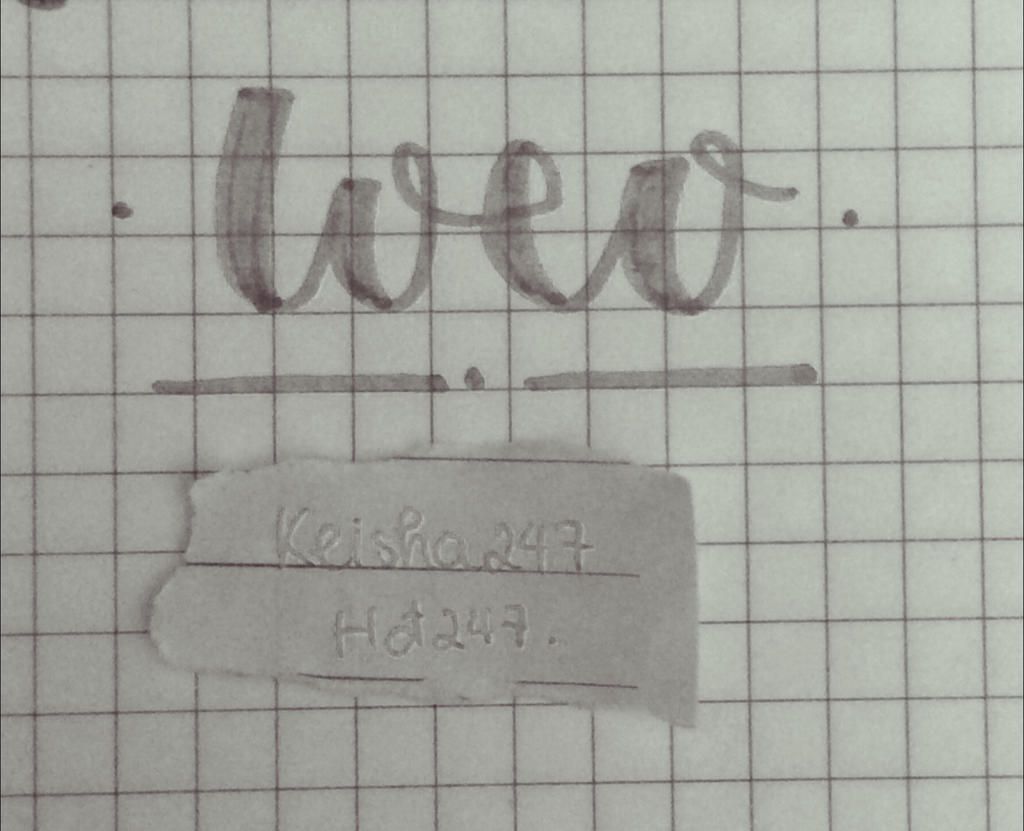 wev
Keisha247
Hot247.